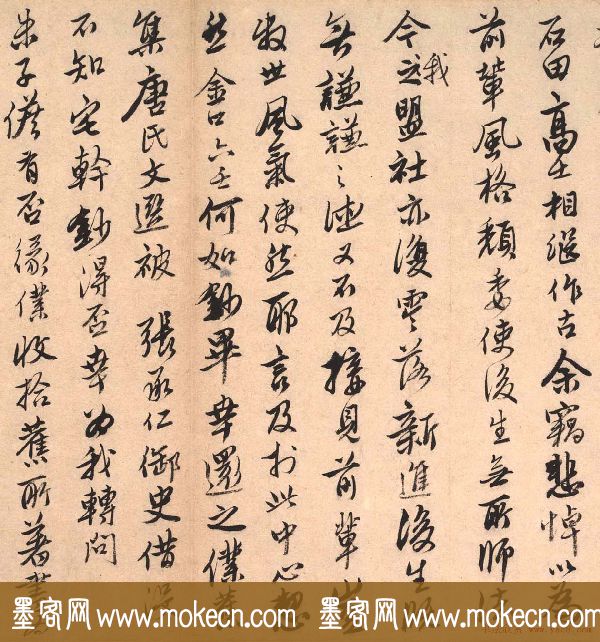 石田高士相繼作古余竊悲悼以為
前輩風格頹委使後生無所師法
今我之盟社亦復零落新進後生眇
無謙謙之德又不及接見前輩豈
教世風氣使然耶言及於此中心愁
然會口六士何如鈔畢幸還之僕
集唐氏文選被張承仁御史借
不知宅幹鈔得否幸為我轉問
朱子儋有否緣僕收拾舊所著書
墨客网 www.mokecn.com 墨客网 www.mokecn.com